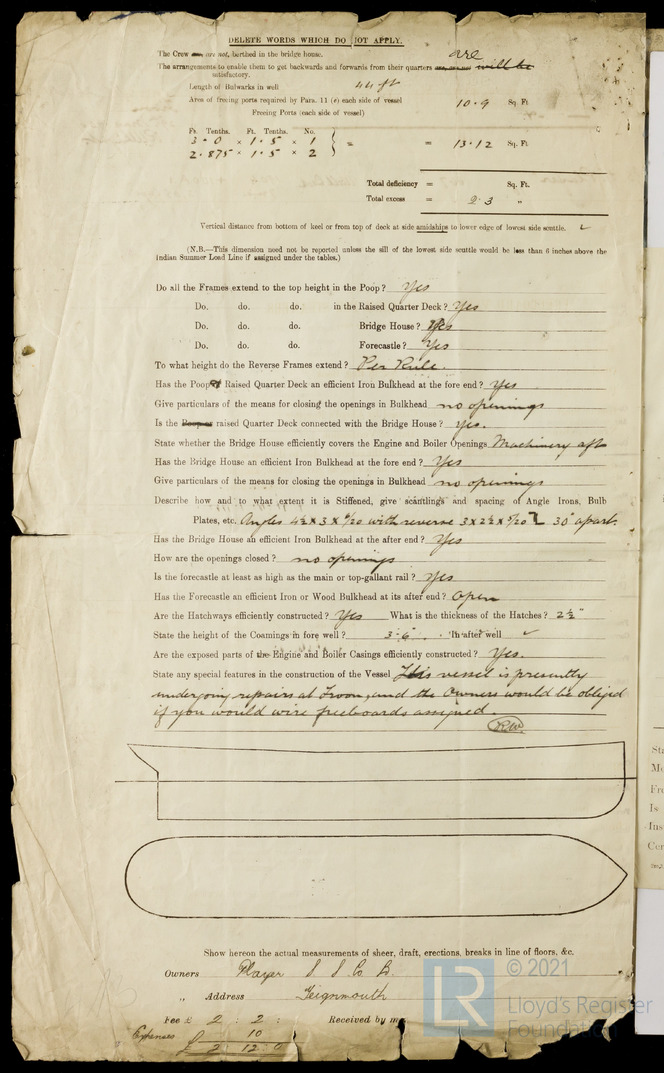 DELETE WORDS WHICH DO NOT APPLY.
The Crew are, are not, berthed in the bridge house.
The arrangements to enable them to get backwards and forwards from their quarters are will be
satisfactory.
Length of Bulwarks in well 44 ft
Area of freeing ports required by Para. 11 (e) each side of vessel 10.9 Sq. Ft.
Freeing Ports (each side of vessel)
Ft. Tenths. Ft. Tenths. No.
3.0 × 1.5 × 1
2.875 × 1.5 × 2 } = = 13.12 Sq. Ft.
Total deficiency = Sq. Ft.
Total excess = 2.3 "
Vertical distance from bottom of keel or from top of deck at side amidships to lower edge of lowest side scuttle. ✓
(N.B.—This dimension need not be reported unless the sill of the lowest side scuttle would be less than 6 inches above the
Indian Summer Load Line if assigned under the tables.)
Do all the Frames extend to the top height in the Poop? Yes
Do. do. do. in the Raised Quarter Deck? Yes
Do. do. do. Bridge House? Yes
Do. do. do. Forecastle? Yes
To what height do the Reverse Frames extend? Per Rule.
Has the Poop or Raised Quarter Deck an efficient Iron Bulkhead at the fore end? Yes
Give particulars of the means for closing the openings in Bulkhead no openings
Is the Poop or raised Quarter Deck connected with the Bridge House? Yes.
State whether the Bridge House efficiently covers the Engine and Boiler Openings Machinery aft
Has the Bridge House an efficient Iron Bulkhead at the fore end? Yes
Give particulars of the means for closing the openings in Bulkhead no openings
Describe how and to what extent it is Stiffened, give scantlings and spacing of Angle Irons, Bulb
Plates, etc. Angles 4½ × 3 × 9/20 with reverse 3 × 2½ × 5/20 30" apart
Has the Bridge House an efficient Iron Bulkhead at the after end? Yes
How are the openings closed? no openings
Is the forecastle at least as high as the main or top-gallant rail? Yes
Has the Forecastle an efficient Iron or Wood Bulkhead at its after end? Open
Are the Hatchways efficiently constructed? Yes What is the thickness of the Hatches? 2½"
State the height of the Coamings in fore well? 3'-6" In after well ✓
Are the exposed parts of the Engine and Boiler Casings efficiently constructed? Yes.
State any special features in the construction of the Vessel This vessel is presently
undergoing repairs at Troon, and the Owners would be obliged
if you would wire freeboards assigned.
Show hereon the actual measurements of sheer, draft, erections, breaks in line of floors, &c.
Owners Player S S Co
" Address Teignmouth
Fee £ 2 : 2 : Received by me
Expenses 10
£ 2 12 0
© 2021
LR
Lloyd's Register
Foundation